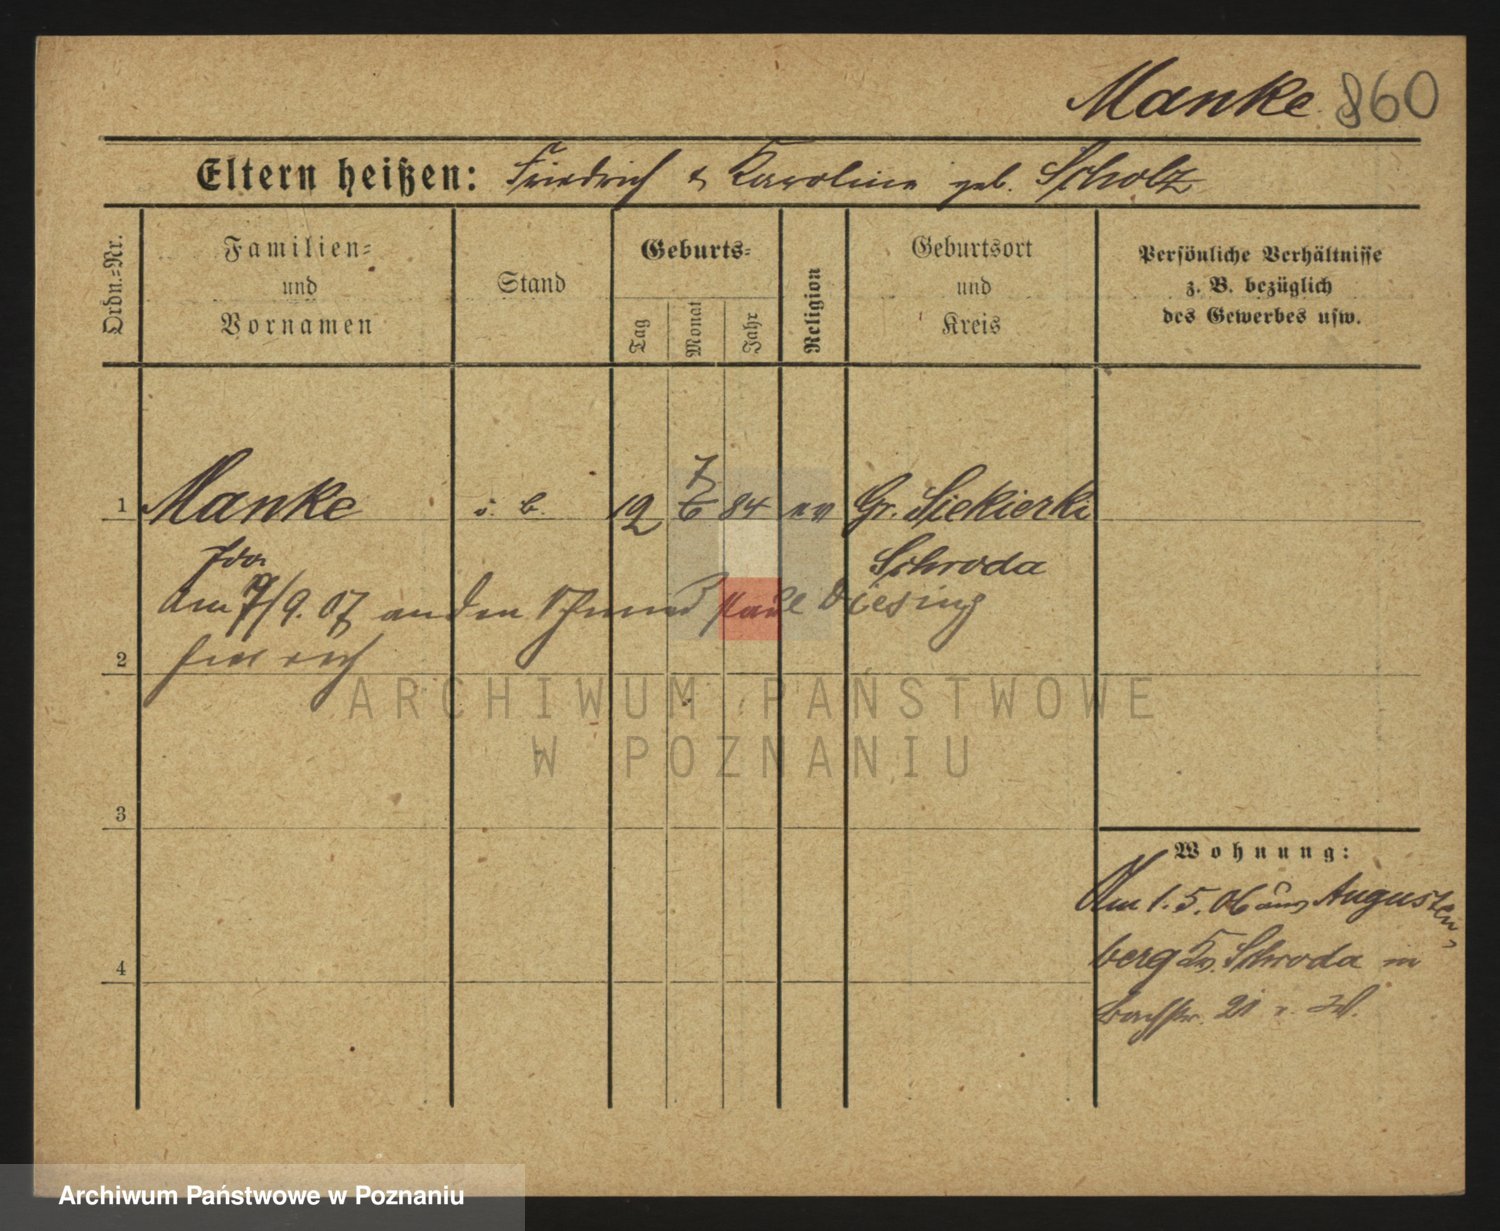 Manke 860
Eltern heißen: Friedrich & Karoline geb. Scholz
Ordn.=Nr.
Familien=
und
Vornamen
Stand
Geburts=
Tag
Monat
Jahr
Religion
Geburtsort
und
Kreis
Persönliche Verhältnisse
z. B. bezüglich
des Gewerbes usw.
7
1 Manke o. b. 12 6 84 ev Gr. Siekierki
Ida Schroda
Am 7/9. 07 an den Paul Diesing
2
3
4
Wohnung:
Am 1. 5. 06 aus Augusten
berg Kr. Schroda in
21
ARCHIWUM PAŃSTWOWE
W POZNANIU
Archiwum Państwowe w Poznaniu